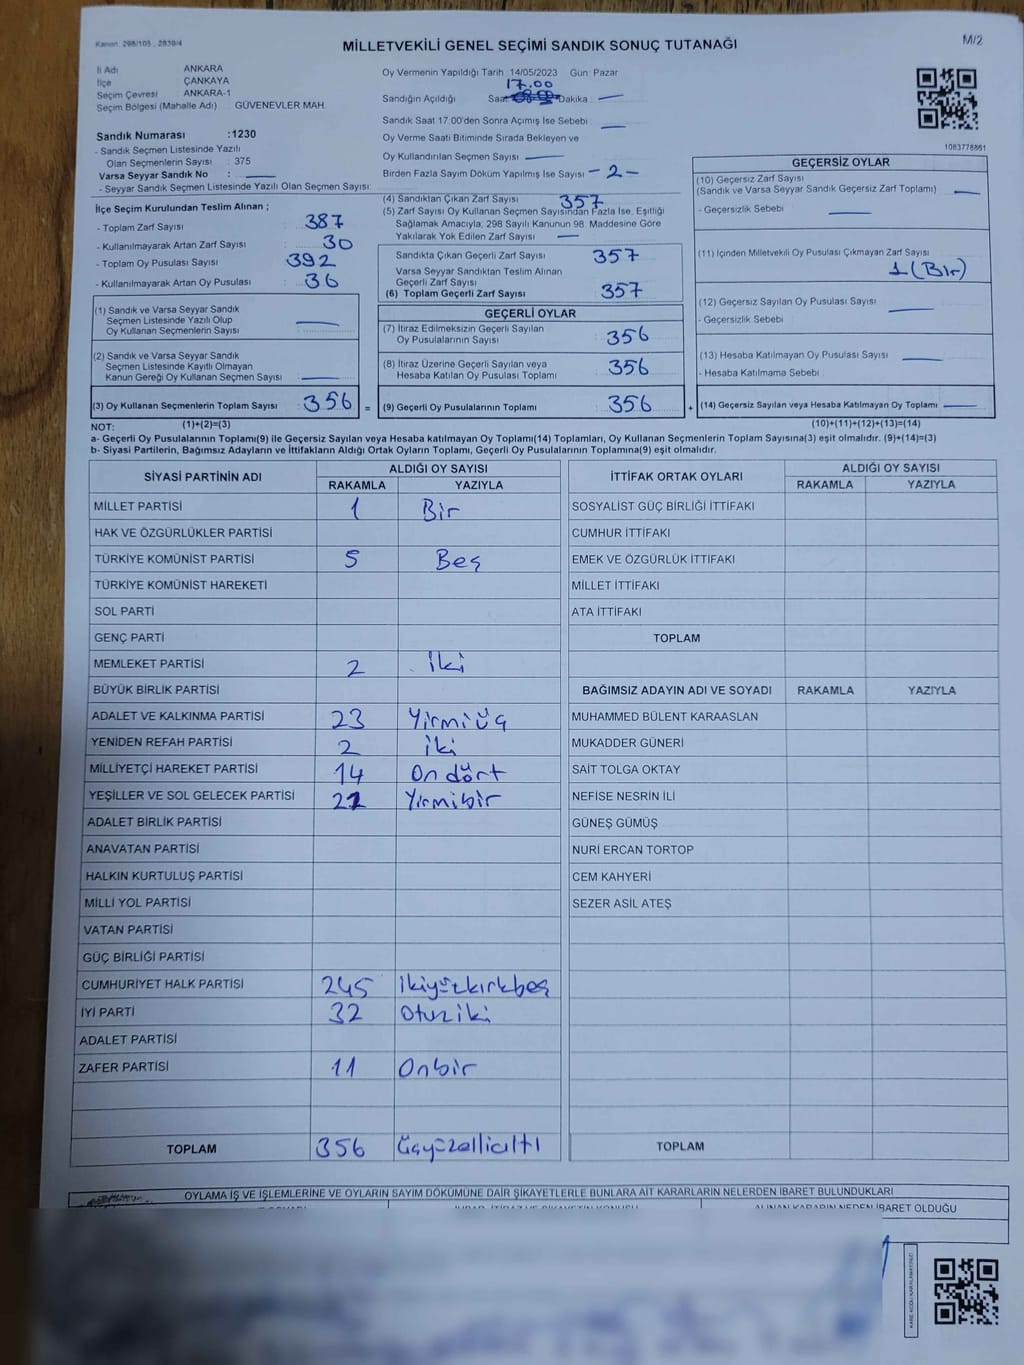 Kanun: 298/105 , 2839/4
MİLLETVEKİLİ GENEL SEÇİMİ SANDIK SONUÇ TUTANAĞI
M/2
İl Adı ANKARA
İlçe ÇANKAYA
Seçim Çevresi ANKARA-1
Seçim Bölgesi (Mahalle Adı) GÜVENEVLER MAH.
Sandık Numarası :1230
- Sandık Seçmen Listesinde Yazılı
Olan Seçmenlerin Sayısı : 375
Varsa Seyyar Sandık No :
- Seyyar Sandık Seçmen Listesinde Yazılı Olan Seçmen Sayısı:
Oy Vermenin Yapıldığı Tarih :14/05/2023 Gün: Pazar
17.00
Sandığın Açıldığı Saat Dakika :
Sandık Saat 17:00'den Sonra Açımış İse Sebebi :
Oy Verme Saati Bitiminde Sırada Bekleyen ve
Oy Kullandırılan Seçmen Sayısı
Birden Fazla Sayım Döküm Yapılmış İse Sayısı - 2 -
1083778861
İlçe Seçim Kurulundan Teslim Alınan ;
- Toplam Zarf Sayısı : 387
- Kullanılmayarak Artan Zarf Sayısı : 30
- Toplam Oy Pusulası Sayısı : 392
- Kullanılmayarak Artan Oy Pusulası : 36
(1) Sandık ve Varsa Seyyar Sandık
Seçmen Listesinde Yazılı Olup
Oy Kullanan Seçmenlerin Sayısı
(2) Sandık ve Varsa Seyyar Sandık
Seçmen Listesinde Kayıtlı Olmayan
Kanun Gereği Oy Kullanan Seçmen Sayısı
(3) Oy Kullanan Seçmenlerin Toplam Sayısı : 356 =
(4) Sandıktan Çıkan Zarf Sayısı 357
(5) Zarf Sayısı Oy Kullanan Seçmen Sayısından Fazla İse, Eşitliği
Sağlamak Amacıyla, 298 Sayılı Kanunun 98. Maddesine Göre
Yakılarak Yok Edilen Zarf Sayısı
Sandıkta Çıkan Geçerli Zarf Sayısı 357
Varsa Seyyar Sandıktan Teslim Alınan
Geçerli Zarf Sayısı
(6) Toplam Geçerli Zarf Sayısı 357
GEÇERLİ OYLAR
(7) İtiraz Edilmeksizin Geçerli Sayılan
Oy Pusulalarının Sayısı : 356
(8) İtiraz Üzerine Geçerli Sayılan veya
Hesaba Katılan Oy Pusulası Toplamı : 356
(9) Geçerli Oy Pusulalarının Toplamı : 356 +
GEÇERSİZ OYLAR
(10) Geçersiz Zarf Sayısı
(Sandık ve Varsa Seyyar Sandık Geçersiz Zarf Toplamı)
- Geçersizlik Sebebi
(11) İçinden Milletvekili Oy Pusulası Çıkmayan Zarf Sayısı
1 (Bir)
(12) Geçersiz Sayılan Oy Pusulası Sayısı
- Geçersizlik Sebebi
(13) Hesaba Katılmayan Oy Pusulası Sayısı
- Hesaba Katılmama Sebebi :
(14) Geçersiz Sayılan veya Hesaba Katılmayan Oy Toplamı
NOT: (1)+(2)=(3) (10)+(11)+(12)+(13)=(14)
a- Geçerli Oy Pusulalarının Toplamı(9) ile Geçersiz Sayılan veya Hesaba katılmayan Oy Toplamı(14) Toplamları, Oy Kullanan Seçmenlerin Toplam Sayısına(3) eşit olmalıdır. (9)+(14)=(3)
b- Siyasi Partilerin, Bağımsız Adayların ve İttifakların Aldığı Ortak Oyların Toplamı, Geçerli Oy Pusulalarının Toplamına(9) eşit olmalıdır.
SİYASİ PARTİNİN ADI ALDIĞI OY SAYISI
RAKAMLA YAZIYLA
MİLLET PARTİSİ 1 Bir
HAK VE ÖZGÜRLÜKLER PARTİSİ
TÜRKİYE KOMÜNİST PARTİSİ 5 Beş
TÜRKİYE KOMÜNİST HAREKETİ
SOL PARTİ
GENÇ PARTİ
MEMLEKET PARTİSİ 2 İki
BÜYÜK BİRLİK PARTİSİ
ADALET VE KALKINMA PARTİSİ 23 Yirmiüç
YENİDEN REFAH PARTİSİ 2 iki
MİLLİYETÇİ HAREKET PARTİSİ 14 On dört
YEŞİLLER VE SOL GELECEK PARTİSİ 21 Yirmibir
ADALET BİRLİK PARTİSİ
ANAVATAN PARTİSİ
HALKIN KURTULUŞ PARTİSİ
MİLLİ YOL PARTİSİ
VATAN PARTİSİ
GÜÇ BİRLİĞİ PARTİSİ
CUMHURİYET HALK PARTİSİ 245 İkiyüzkırkbeş
İYİ PARTİ 32 Otuziki
ADALET PARTİSİ
ZAFER PARTİSİ 11 Onbir
TOPLAM 356 Üçyüzellialtı
İTTİFAK ORTAK OYLARI ALDIĞI OY SAYISI
RAKAMLA YAZIYLA
SOSYALİST GÜÇ BİRLİĞİ İTTİFAKI
CUMHUR İTTİFAKI
EMEK VE ÖZGÜRLÜK İTTİFAKI
MİLLET İTTİFAKI
ATA İTTİFAKI
TOPLAM
BAĞIMSIZ ADAYIN ADI VE SOYADI RAKAMLA YAZIYLA
MUHAMMED BÜLENT KARAASLAN
MUKADDER GÜNERİ
SAİT TOLGA OKTAY
NEFİSE NESRİN İLİ
GÜNEŞ GÜMÜŞ
NURİ ERCAN TORTOP
CEM KAHYERİ
SEZER ASİL ATEŞ
TOPLAM
OYLAMA İŞ VE İŞLEMLERİNE VE OYLARIN SAYIM DÖKÜMÜNE DAİR ŞİKAYETLERLE BUNLARA AİT KARARLARIN NELERDEN İBARET BULUNDUKLARI
ALINAN KARARIN NEDEN İBARET OLDUĞU